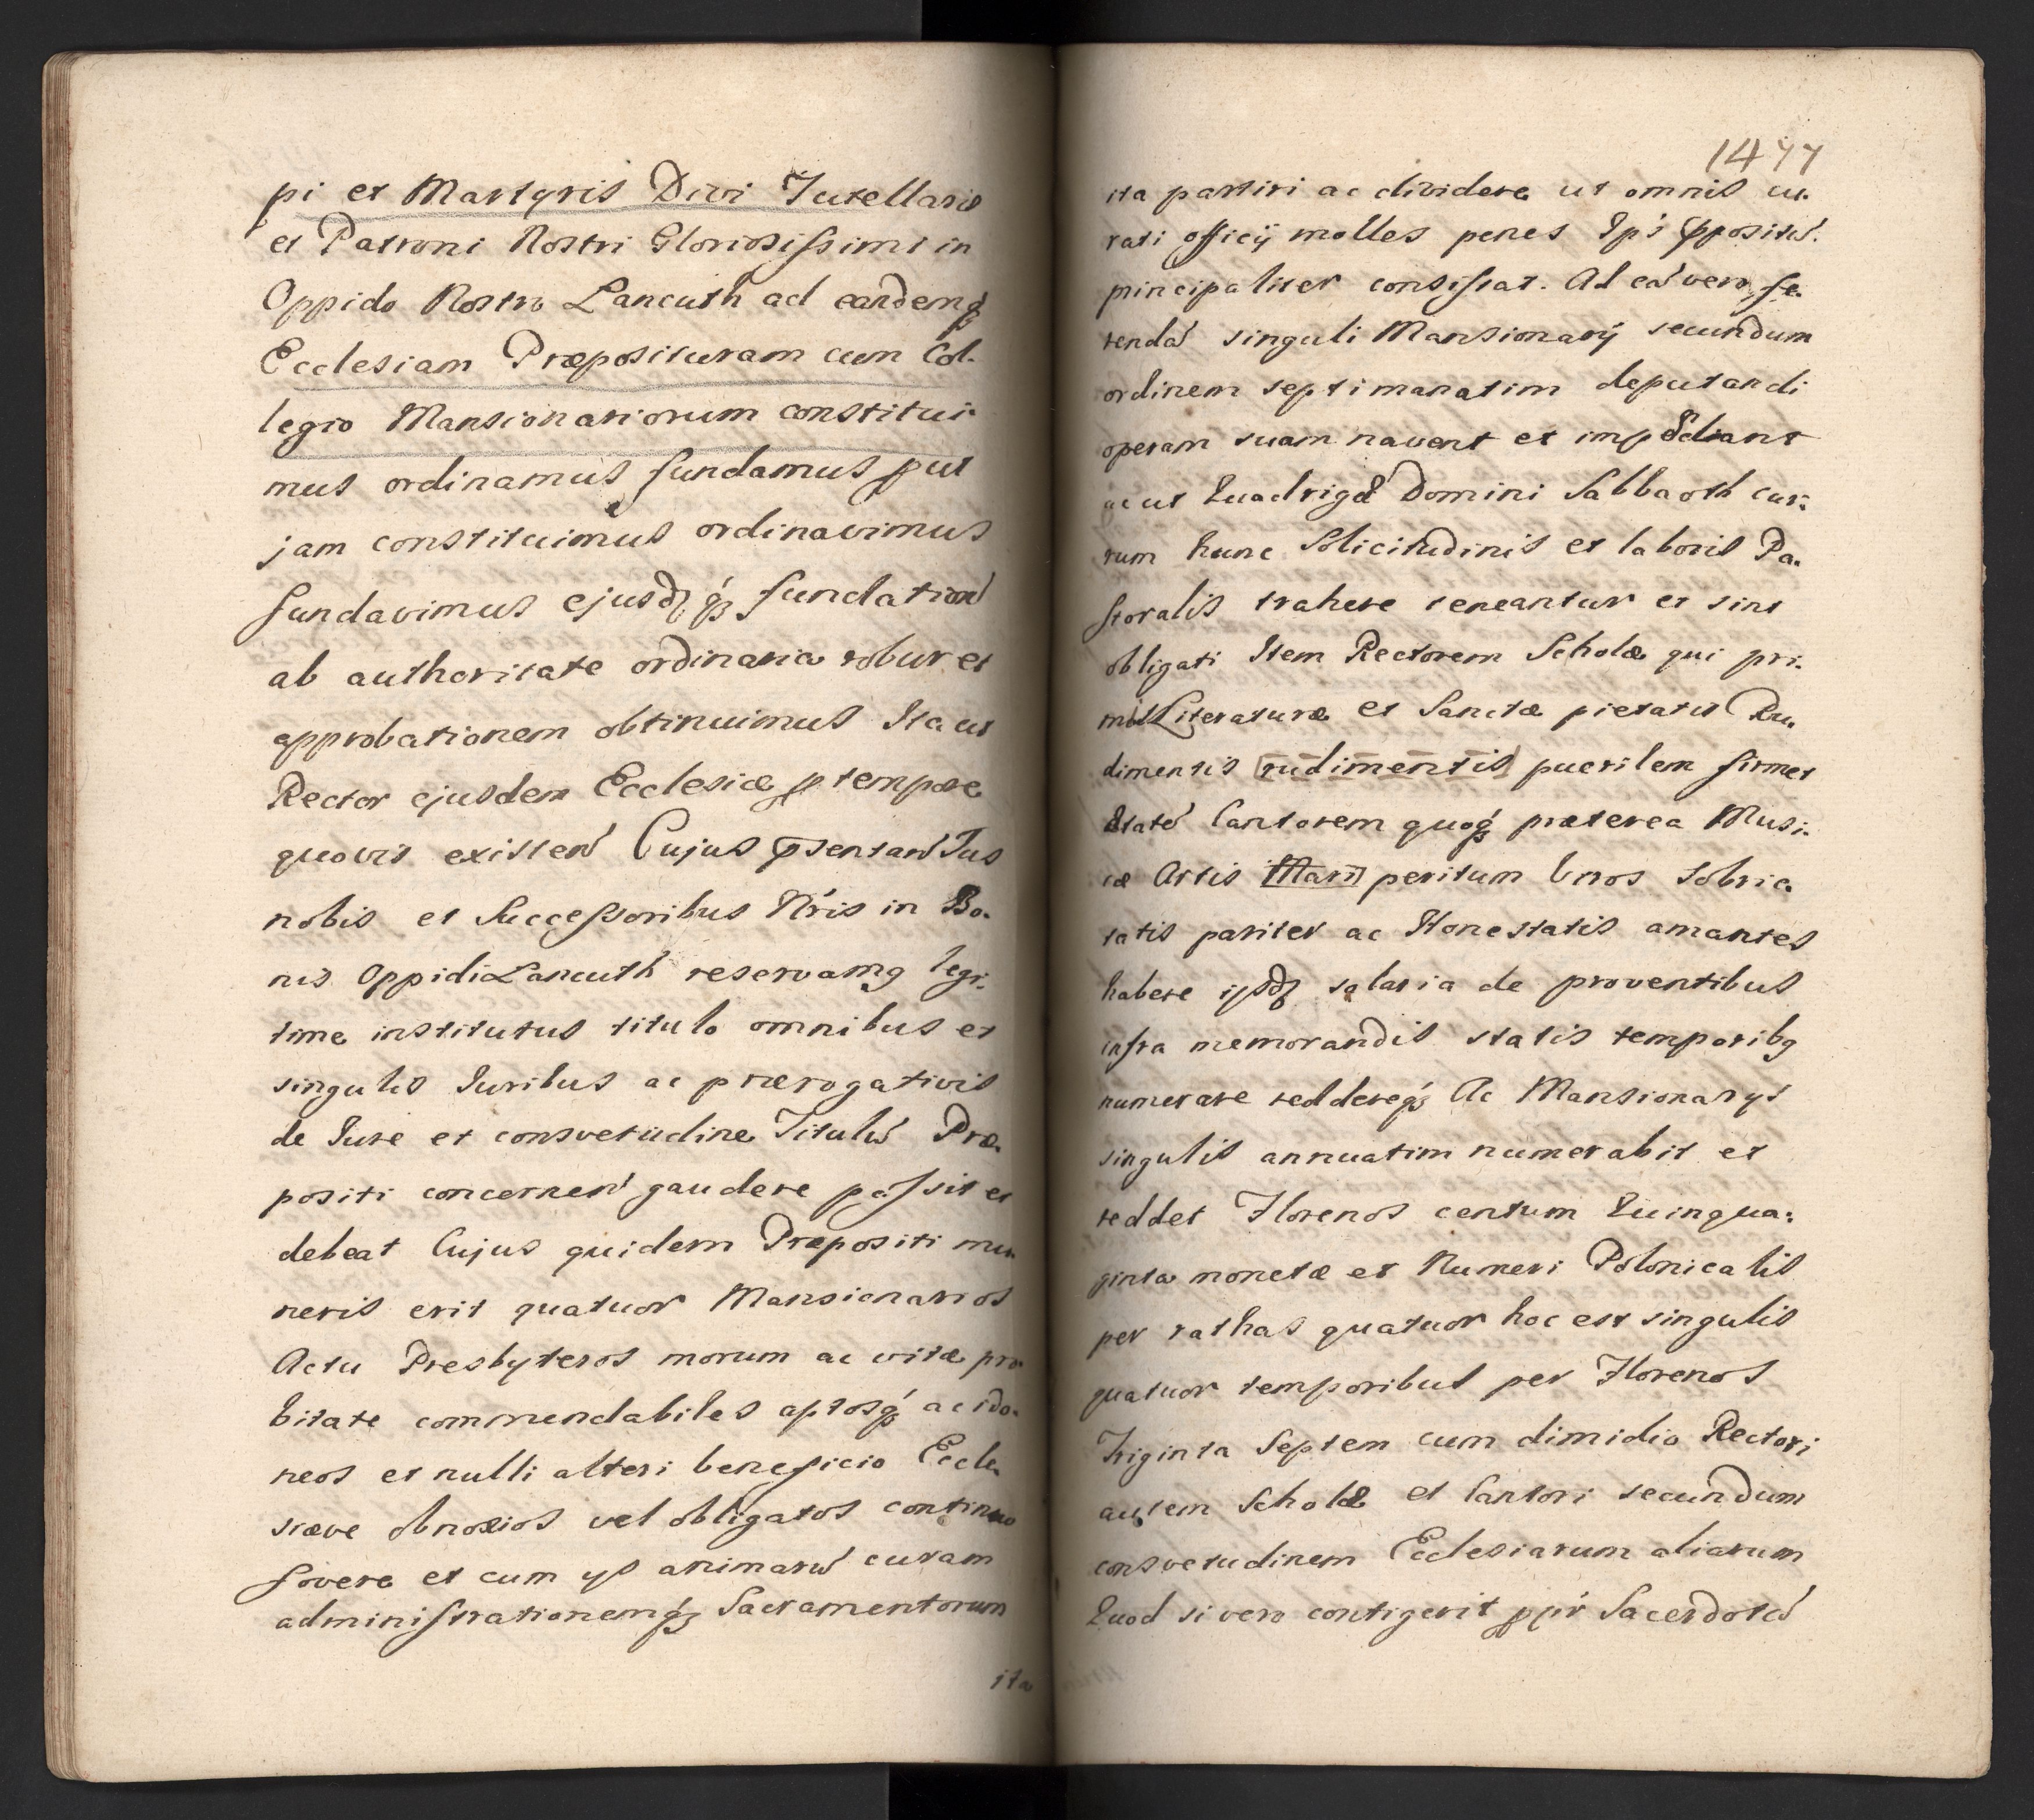 pi et Martyris Divi Tutellaris
et Patroni Nostri Gloriosissimi in
Oppido Nostro Lancuth ad eandemq́
Ecclesiam Præposituram cum Col-
legio Mansionariorum constitui-
mus ordinamus fundamus put
jam constituimus ordinavimus
fundavimus ejusdq́ fundationé
ab authoritate ordinaria robur et
approbationem obtinuimus Ita ut
Rector ejusdem Ecclesiæ p tempore
quovis existen Cujus p̄sentandi Jus
nobis et Successoribus Nŕis in Bo-
nis Oppidi Lancuth reservamq legi-
time institutus titulo omnibus et
singulis Juribus ac prærogativis
de Jure et consvetudine Titulú Præ-
positi concernen gaudere possit et
debeat Cujus quidem Præpositi mu-
neris erit quatuor Mansionarios
Actu Presbyteros morum ac vitæ pro-
bitate commendabiles aptosq́ ac ido-
neos et nulli alteri beneficio Eccle-
siæve obnoxios vel obligatos continuo
fovere et cum ys animarú curam
administrationemq́ Sacramentorum
ita
1477
ita partiri ac dividere ut omnis cu-
rati officij molles penes Ip'i Ppositú
principaliter consistat. Ad eá vero fe-
rendá singuli Mansionarij secundum
ordinem septimanatim deputandi
operam suam navent et impediant
ac ut Quadrigæ Domini Sabbaoth cur-
rum hunc Solicitudinis et laboris Pa-
storalis trahere teneantur et sint
obligati Item Rectorem Scholæ qui pri-
mis Literaturæ et Sanctæ pietatis Ru-
dimentis rudimentis puerilem firmet
Ætaté Cantorem quoq́ præterea Musi-
cæ Artis peritum Viros Sobrie-
tatis pariter ac Honestatis amantes
habere ijsdq́ salaria de proventibus
infra memorandis statis temporibq
numerare reddereq́ Ac Mansionarys
singulis annuatim numerabit et
reddet Florenos centum Quinqua-
ginta monetæ et Numeri Polonicalis
per rathas quatuor hoc est singulis
quatuor temporibus per Florenos
Triginta Septem cum dimidio Rectori
autem Scholæ et Cantori secundum
consvetudinem Ecclesiarum aliarum
Quod si vero contigerit Sacerdotú